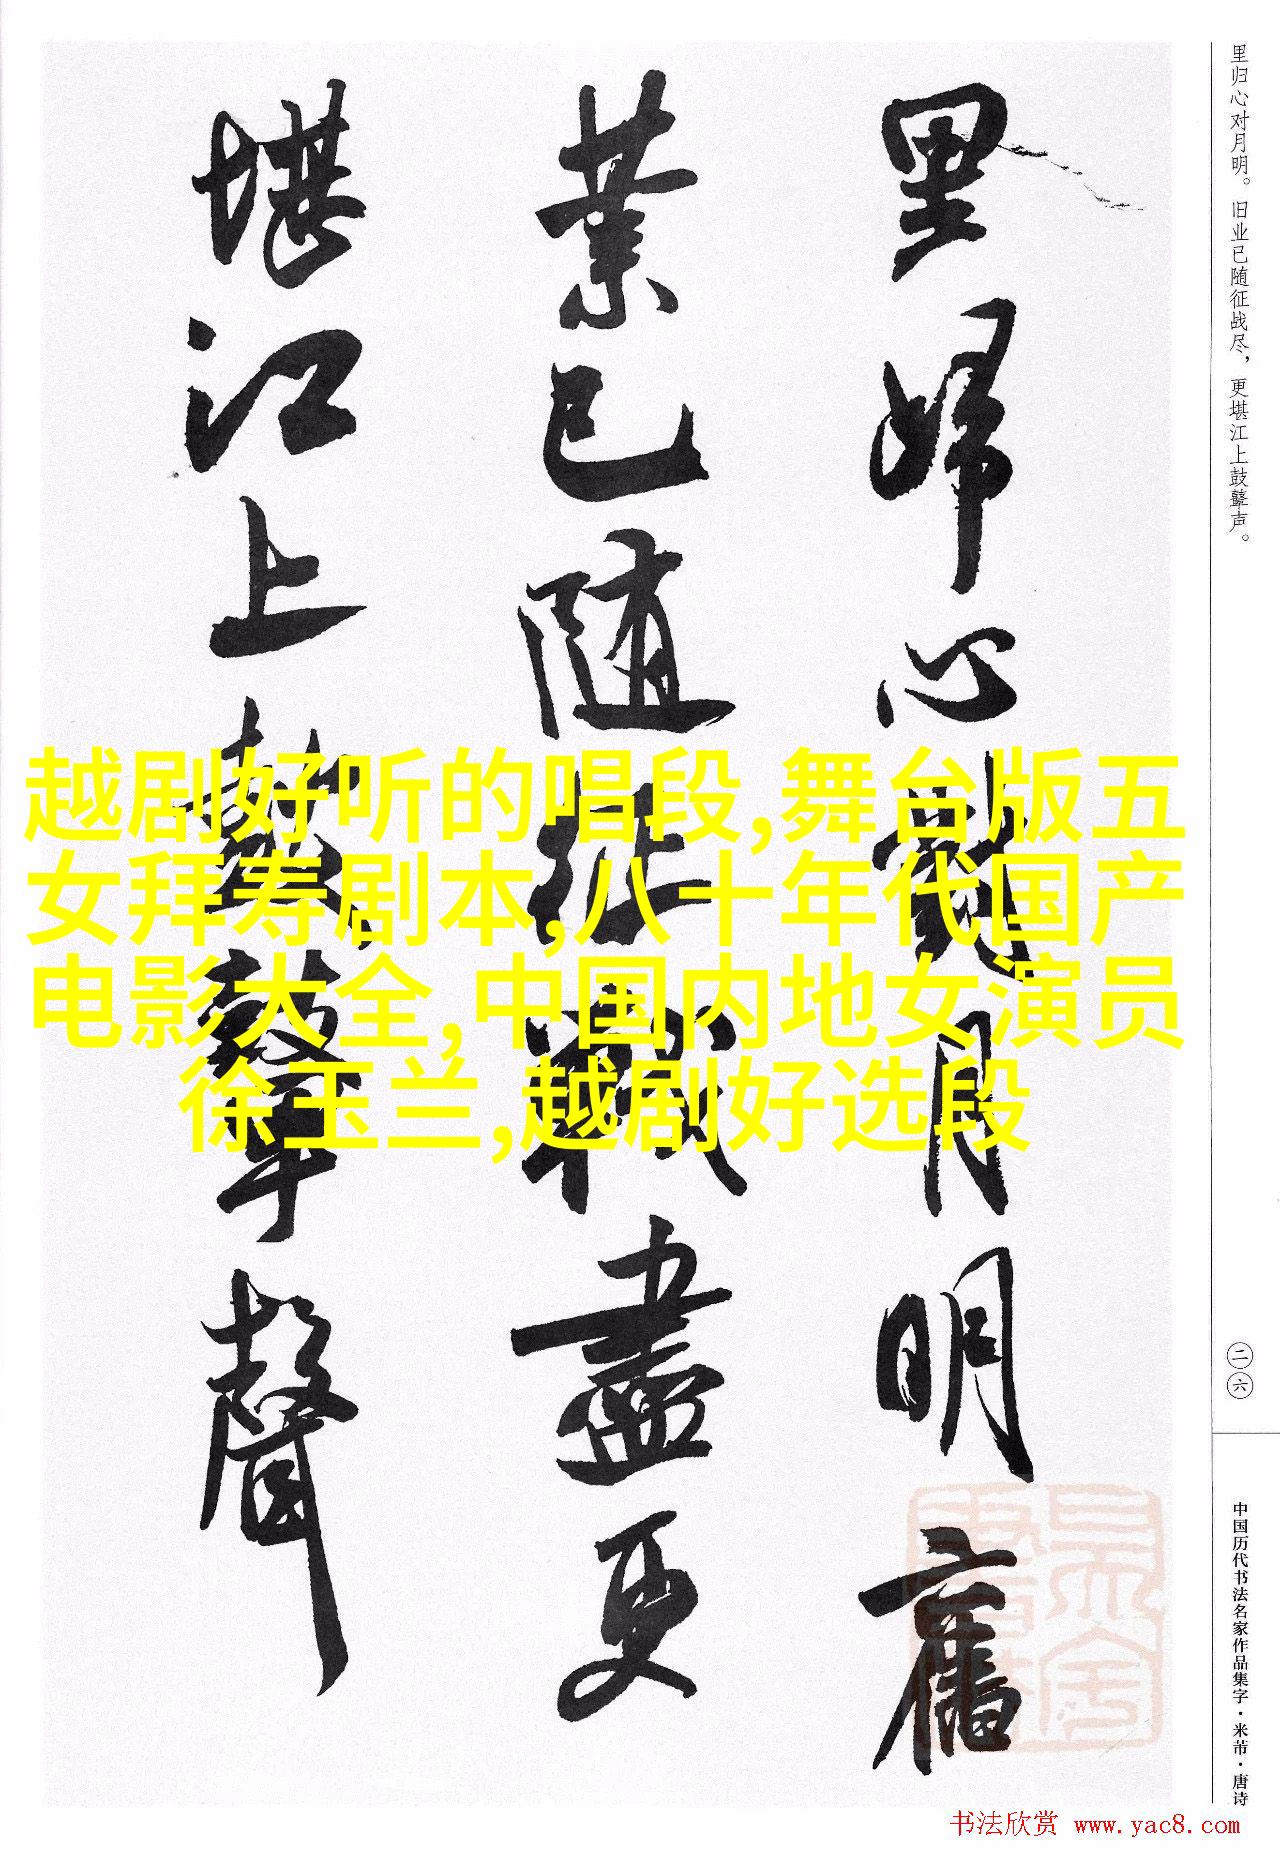 里歸心對月明舊
業已隨征戰盡更
堪江上鼓鼙聲
里归心对月明。旧业已随征战尽，更堪江上鼓鼙声。
二六
中国历代书法名家作品集字·米芾·唐诗
越剧好听的唱段,舞台版五
女拜寿剧本,八十年代国产
电影大全,中国内地女演员
徐玉兰,越剧好选段
书法欣赏 www.yac8.com